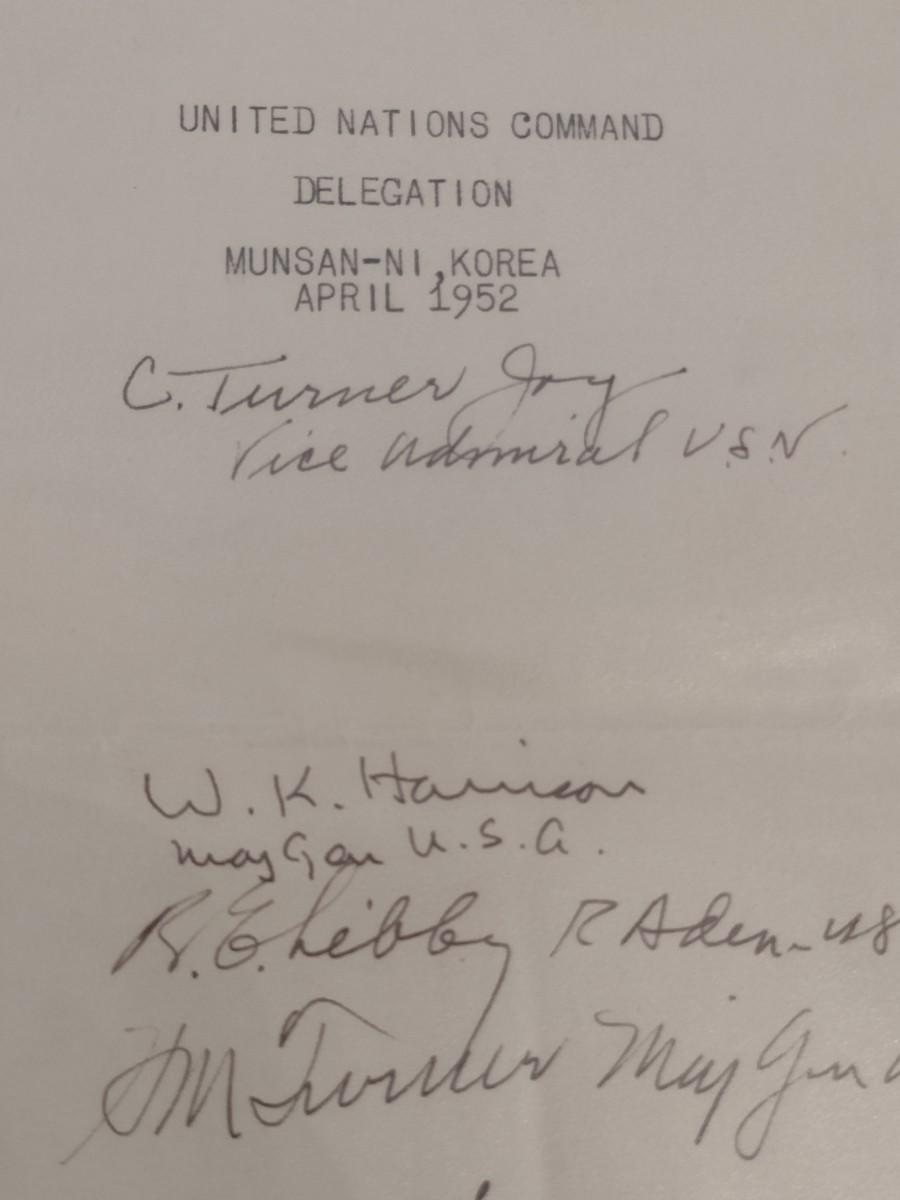 UNITED NATIONS COMMAND
DELEGATION
MUNSAN-NI, KOREA
APRIL 1952
C. Turner Joy
Vice Admiral U.S.N.
W. K. Harrison
Maj Gen U.S.A.
R. E. Libby R Adm. US
H M Turner Maj Gen